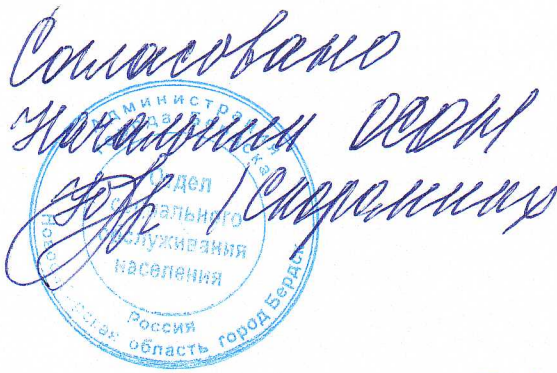 Согласовано
Начальник ОСОН
Администрация
города Бердска
Отдел
социального
обслуживания
населения
Россия
Новосибирская область город Бердск